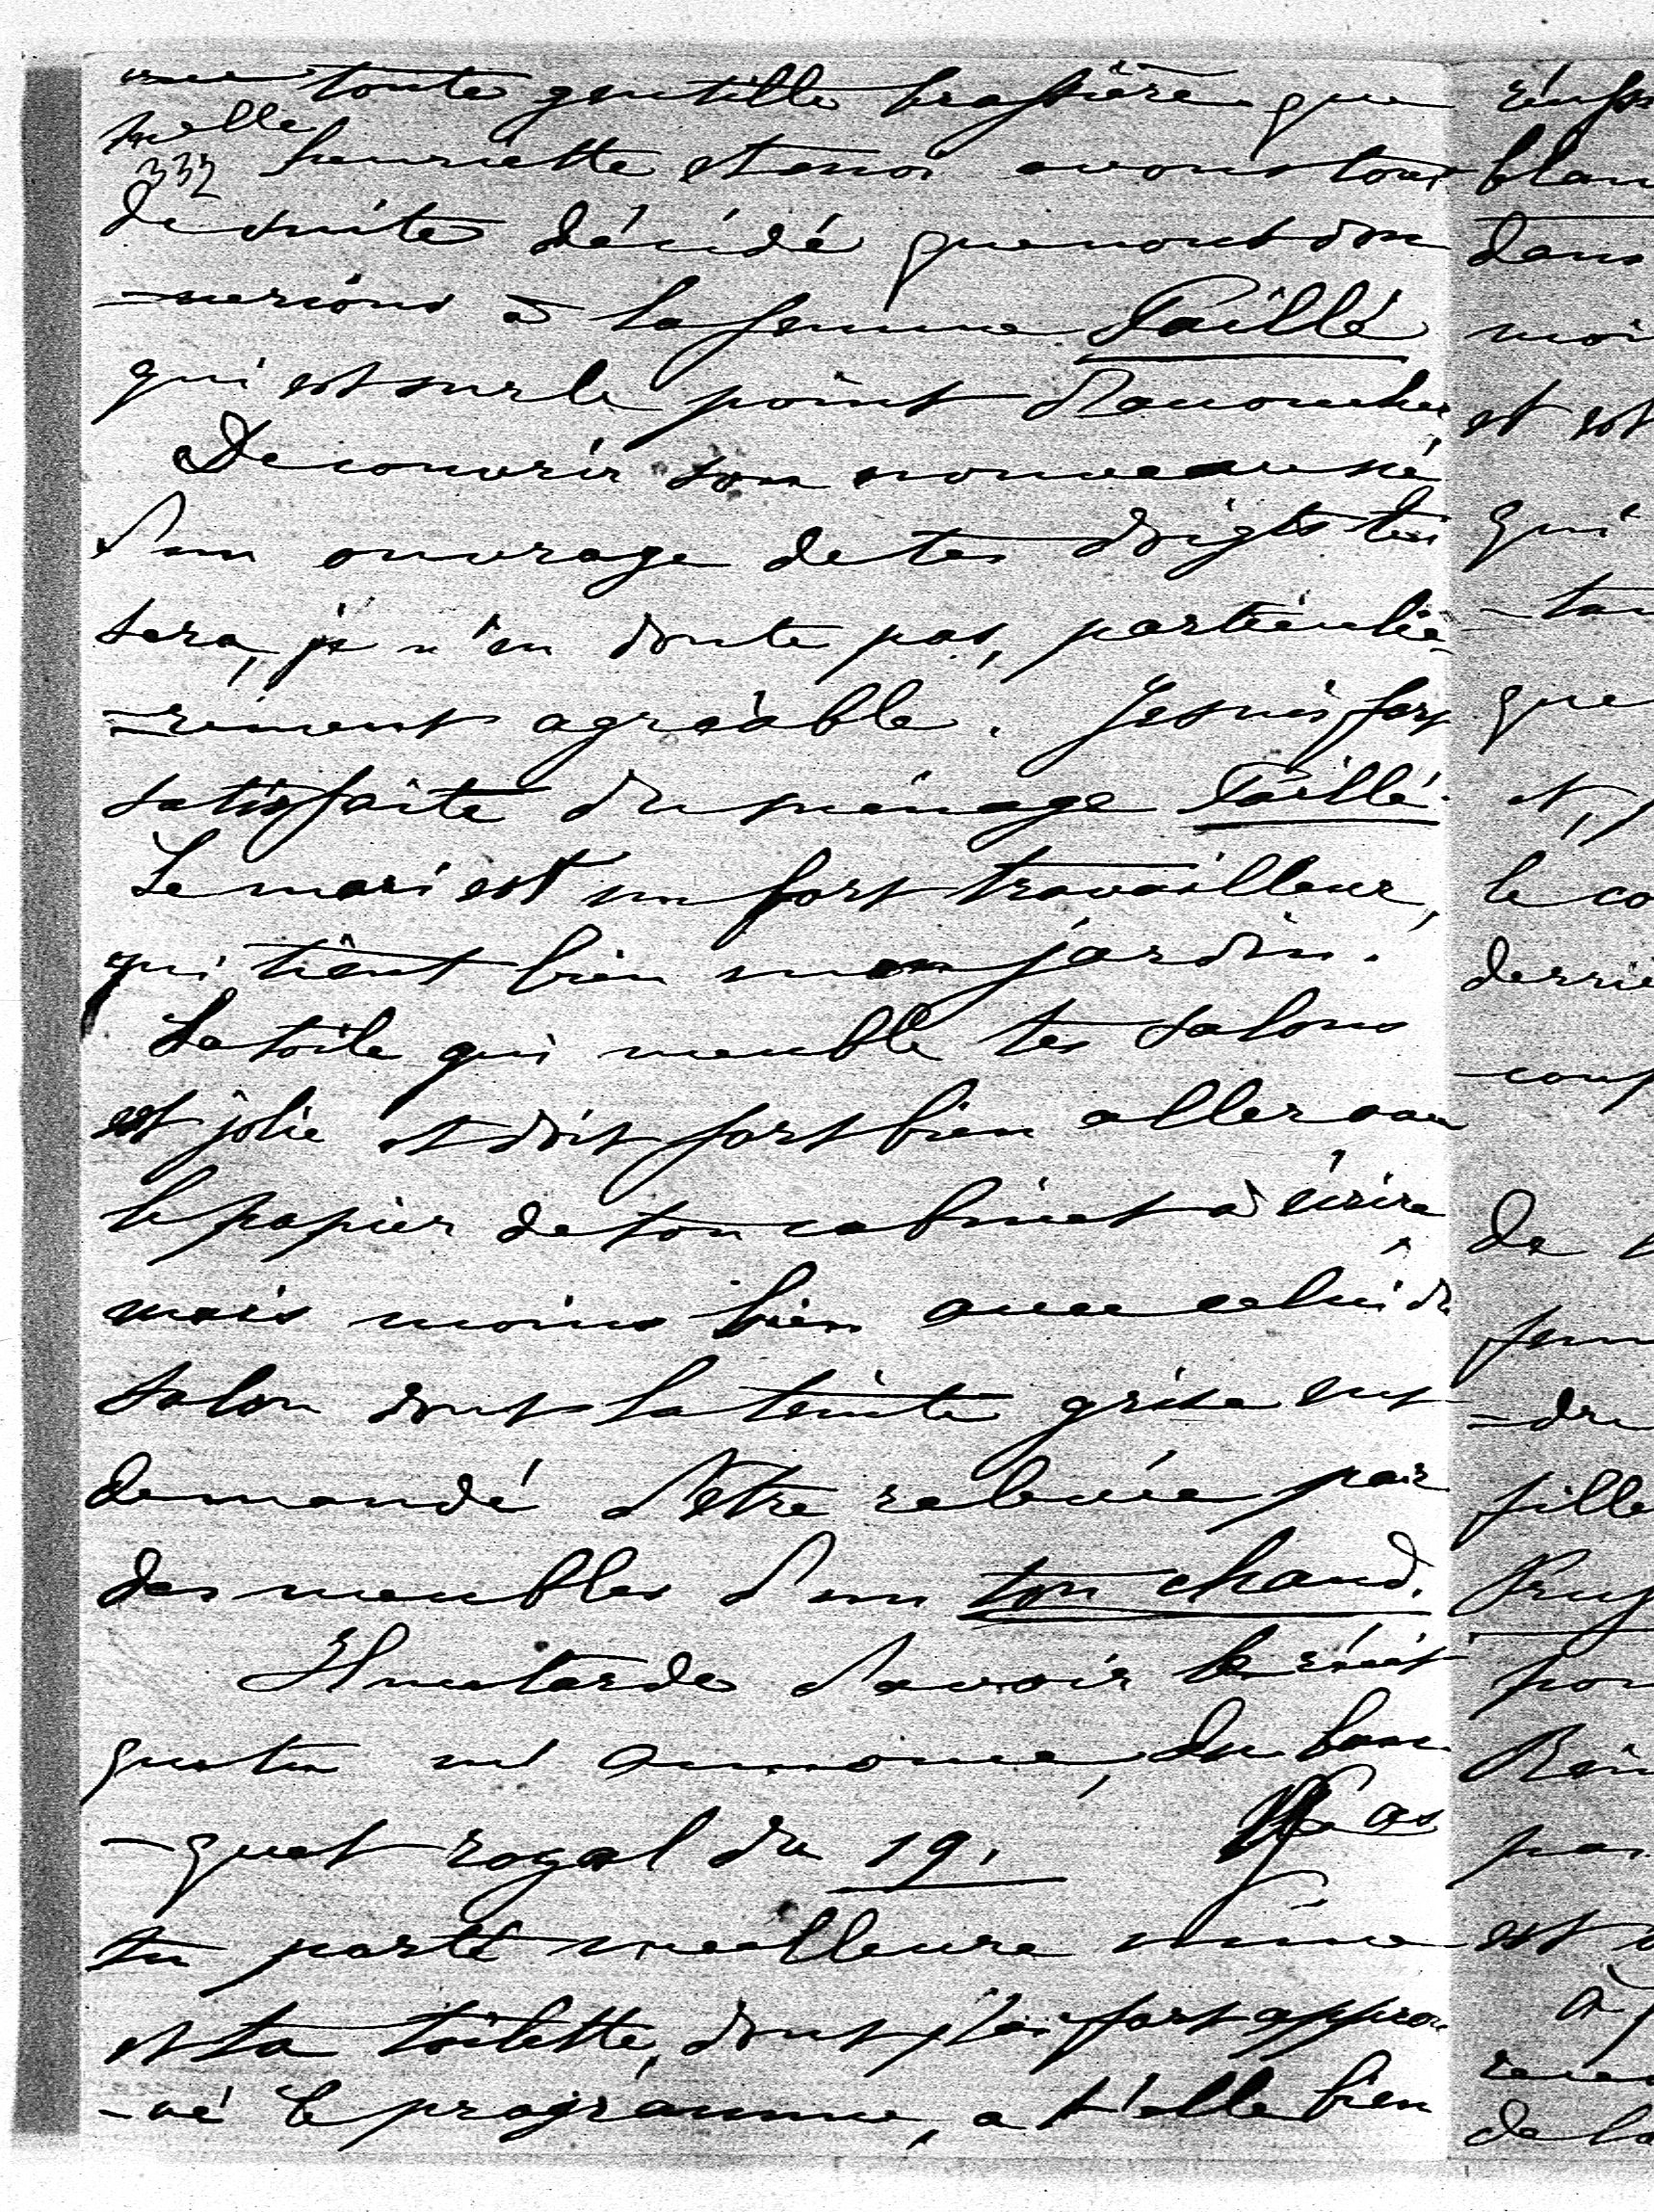 une toute gentille brassière que
Melle henriette et moi avons tout
332
de suite décidé que nous don
-nerions à la femme Paillé
qui est sur le point d'accoucher
De couvrir son nouveau né
d'un ouvrage de tes doigts lui
sera, je n'en doute pas, particuliè-
-rement agréable. Je suis fort
satisfaite du ménage Paillé.
Le mari est un fort travailleur,
qui tient bien mon jardin.
La toile qui meuble tes salons
est jolie et doit fort bien aller avec
le papier de ton cabinet à écrire,
mais moins bien avec celui du
salon dont la teinte grise eut
demandé d'être relevée par
des meubles d'un ton chaud.
Il me tarde d'avoir le récit
que tu m'annonce, du ban-
-quet royal du 19. As
tu porté meilleure mine
et ta toilette, dont j'ai fort approu-
-vé le programme, a t'elle bien
blanc
dans
moi
et est
qui
-tau
que
et, j
le co
derriè
-coup
de
femm
-dre
fille
pou
par
est
à
de la